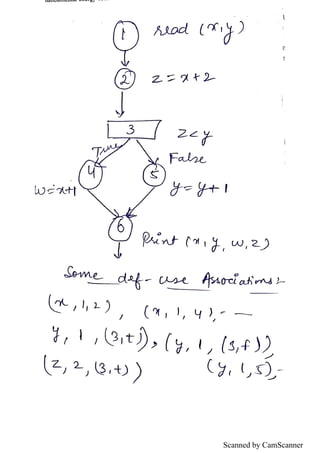 1 read (x,y)
2 z = x+2
3 z<y
True False
4 5
w=x+1 y = y+1
6
Print (x, y, w, z)
Some def-use Associations:-
(x,1,2), (x, 1, 4),- —
y, 1, (3,t)), (y, 1, (3,f))
(z, 2, (3,t)) (y, 1, 5),-
Scanned by CamScanner